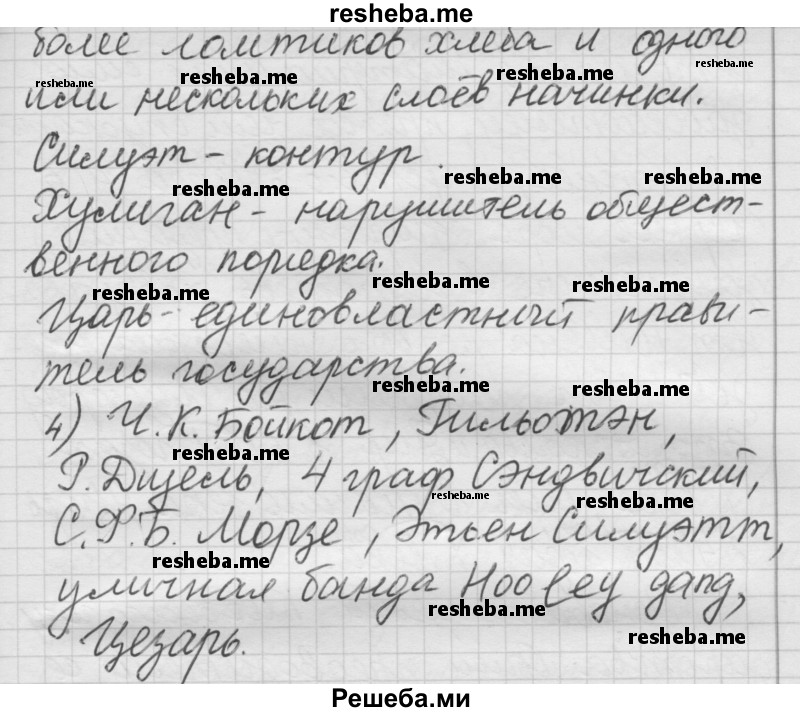 resheba.me
более ломтиков хлеба и одного
resheba.me resheba.me resheba.me resheba.me
или нескольких слоёв начинки.
Силуэт - контур.
resheba.me resheba.me resheba.me
Хулиган - нарушитель общест-
венного порядка.
resheba.me resheba.me resheba.me
Царь - единовластный прави-
тель государства.
resheba.me resheba.me
4) Ч. К. Бойкот, Гильотэн,
resheba.me
Р. Дизель, 4 граф Сэндвичский,
resheba.me resheba.me
С. Ф. Б. Морзе, Этьен Силуэтт,
resheba.me
уличная банда Hooley gang,
resheba.me
Цезарь.
resheba.me
Решеба.ми